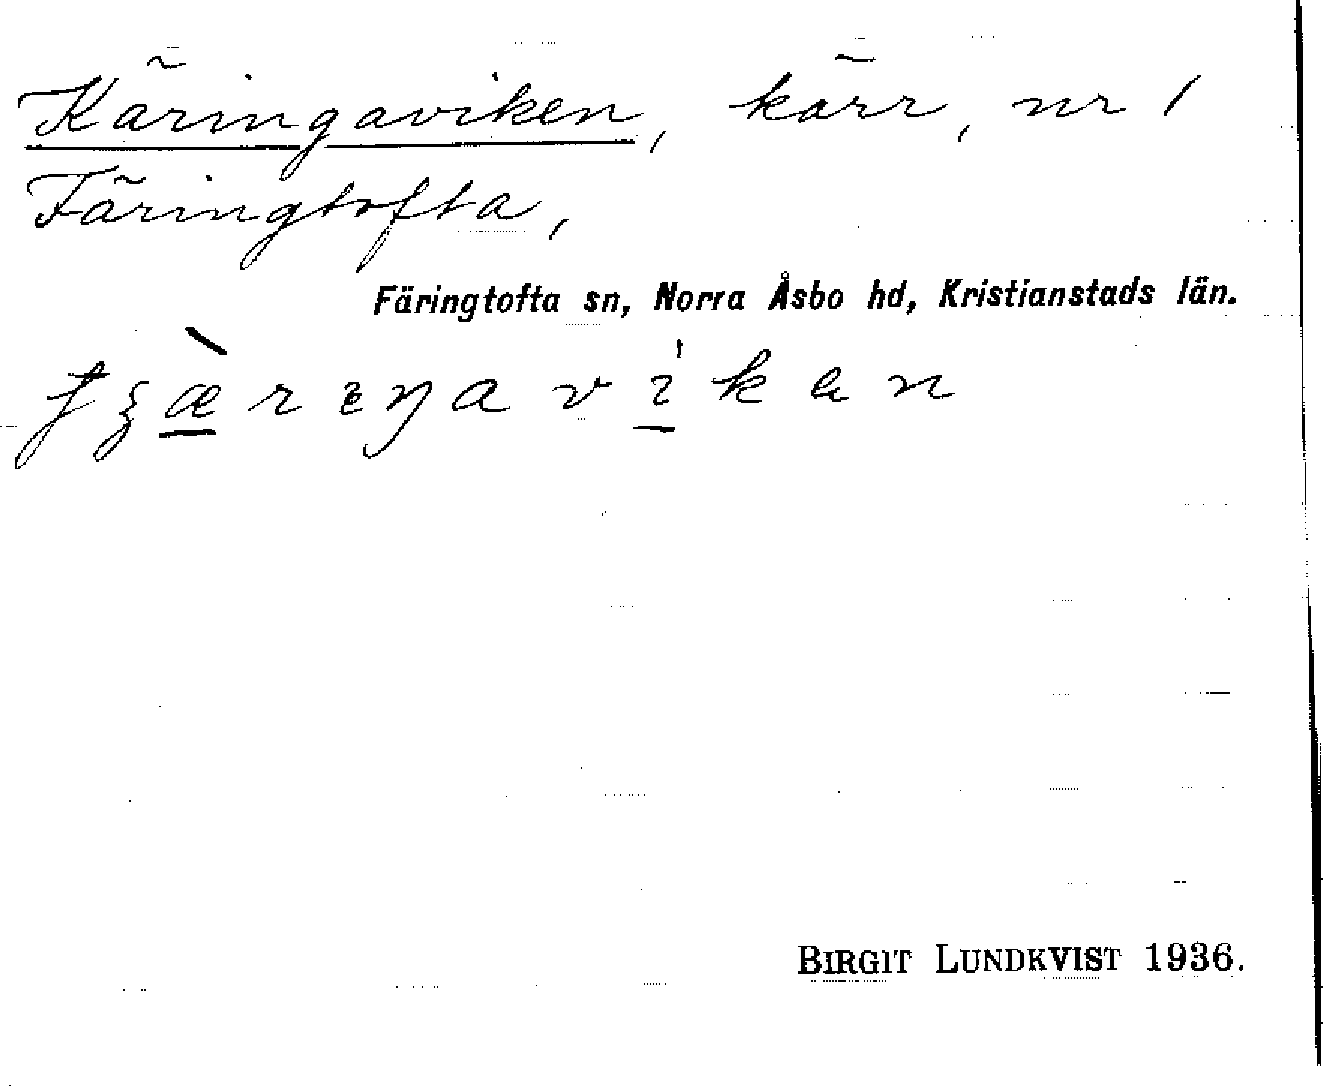 Käringaviken, kärr, nr 1
Färingtofta,
Färingtofta sn, Norra Åsbo hd, Kristianstads län.
BIRGIT LUNDKVIST 1936.